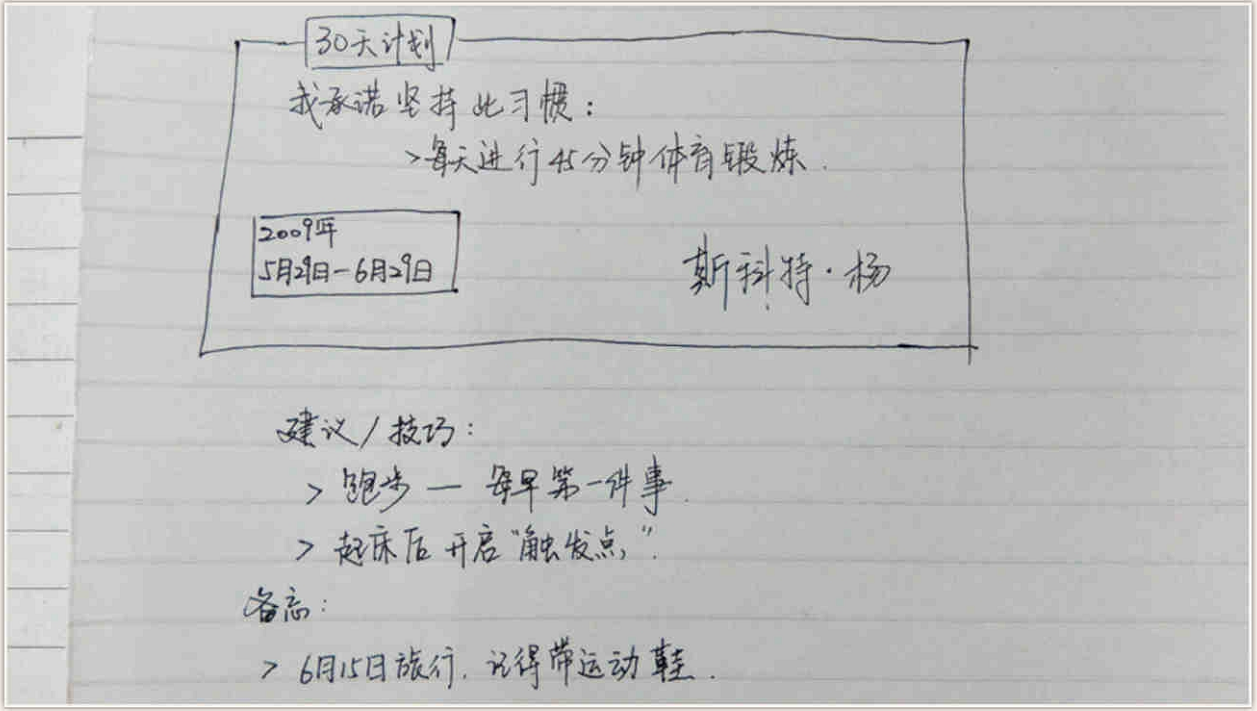 30天计划
我承诺坚持此习惯：
>每天进行45分钟体育锻炼.
2009年
5月29日-6月29日
斯科特·杨
建议/技巧：
> 跑步 — 每早第一件事.
> 起床后开启“触发点”.
备忘：
> 6月15日旅行. 记得带运动鞋.